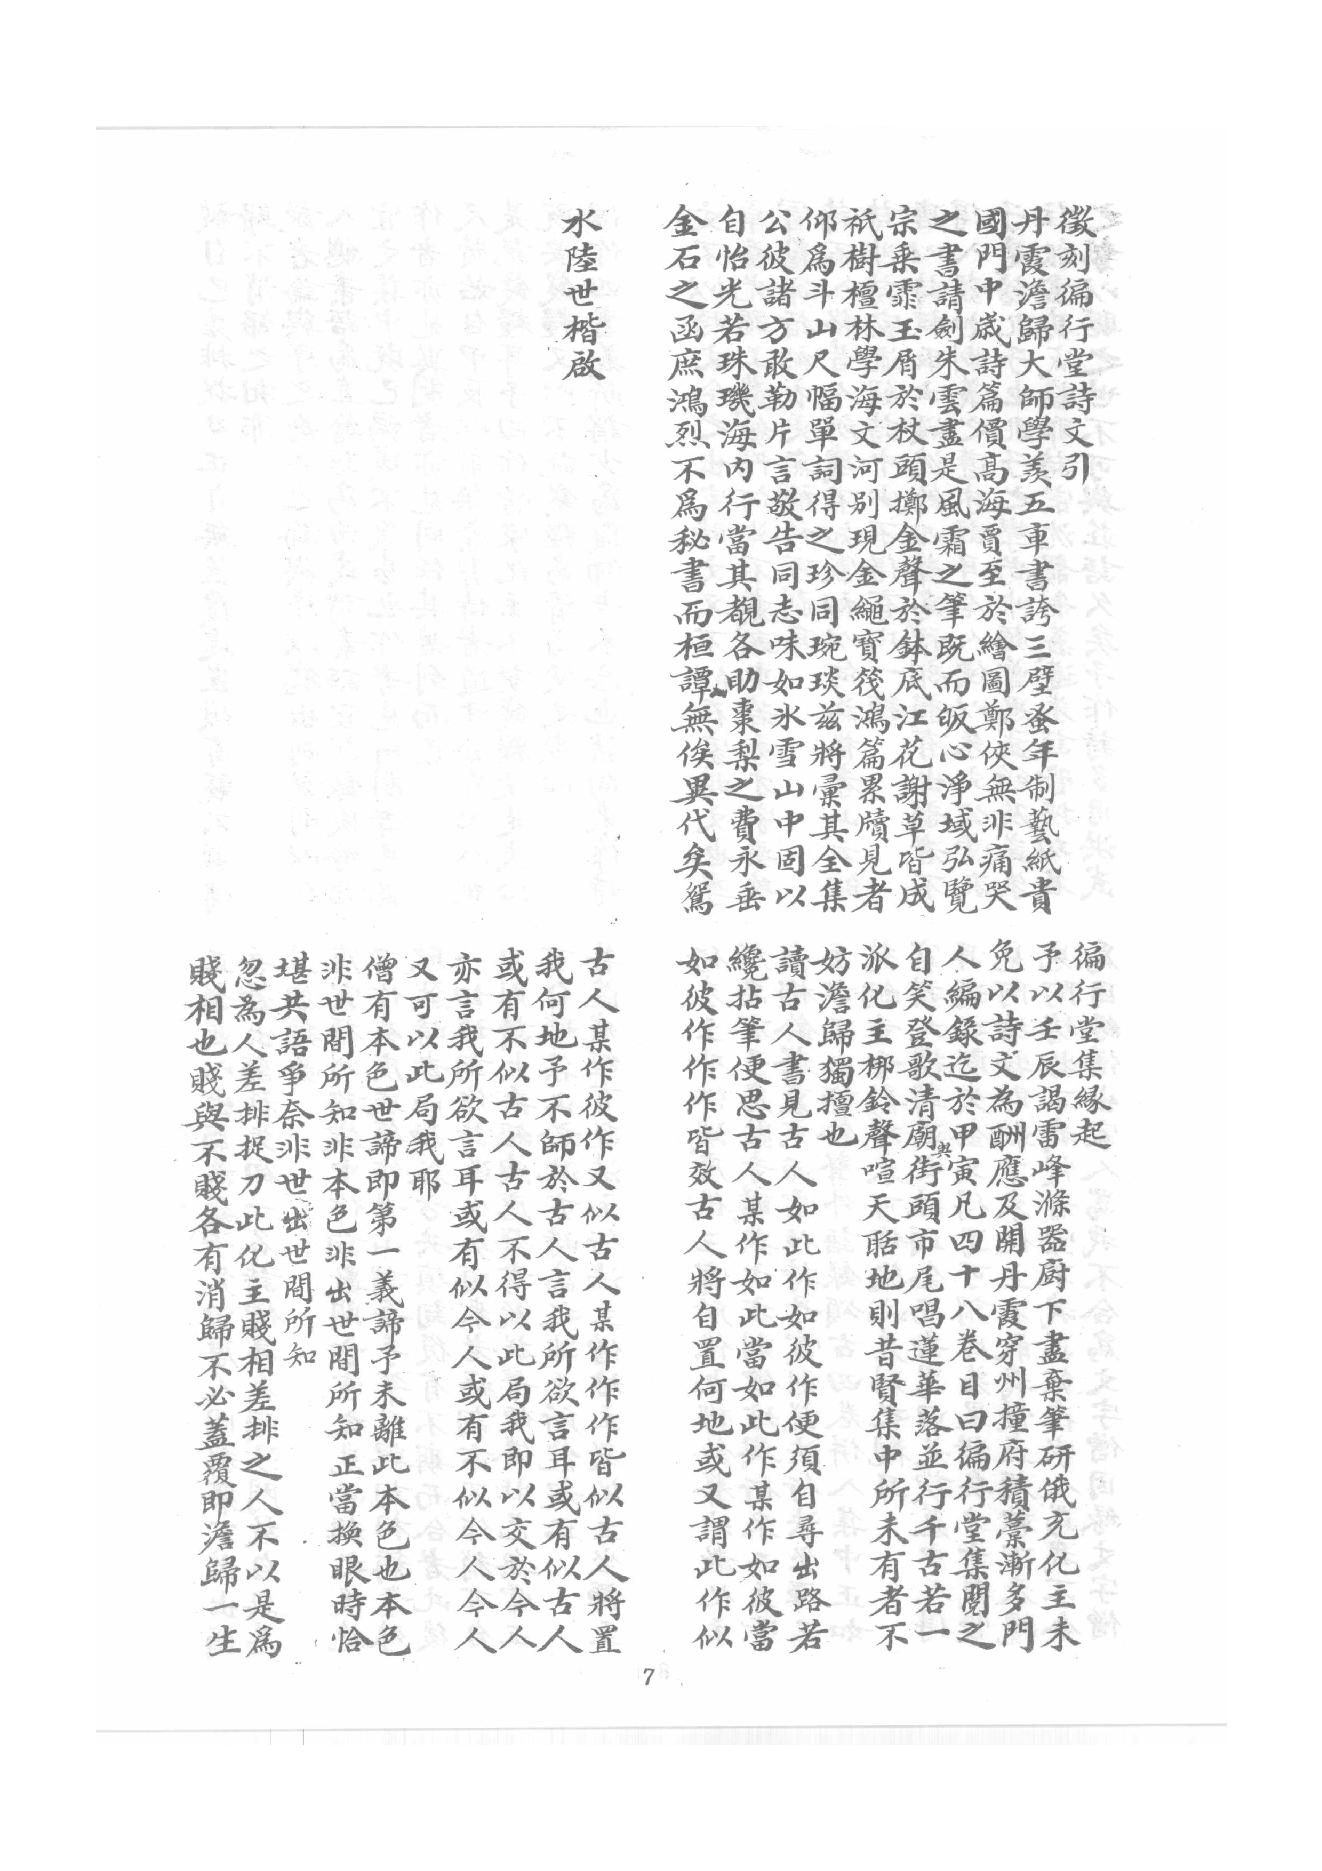 徵刻徧行堂詩文引
丹霞澹歸大師學羨五車書誇三壁蚤年制藝紙貴
國門中歲詩篇價高海賈至於繪圖鄭俠無非痛哭
之書請劍朱雲盡是風霜之筆既而皈心淨域弘覽
宗乘霏玉屑於杖頭擲金聲於鉢底江花謝草皆成
祇樹檀林學海文河別現金繩寶筏鴻篇累牘見者
仰爲斗山尺幅單詞得之珍同琬琰茲將彙其全集
公彼諸方敢勒片言敬告同志味如氷雪山中固以
自怡光若珠璣海內行當其覩各助棗梨之費永垂
金石之函庶鴻烈不爲秘書而桓譚無俟異代矣鴛
水陸世楷啟
徧行堂集緣起
予以壬辰謁雷峰滌器厨下盡棄筆研俄充化主未
免以詩文為酬應及開丹霞穿州撞府積藁漸多門
人編錄迄於甲寅凡四十八卷目曰徧行堂集閱之
自笑登歌清廟與街頭市尾唱蓮華落並行千古若一
派化主梆鈴聲喧天聒地則昔賢集中所未有者不
妨澹歸獨擅也
讀古人書見古人如此作如彼作便須自尋出路若
纔拈筆便思古人某作如此當如此作某作如彼當
如彼作作作皆效古人將自置何地或又謂此作似
古人某作彼作又似古人某作作作皆似古人將置
我何地予不師於古人言我所欲言耳或有似古人
或有不似古人古人不得以此局我即以交於今人
亦言我所欲言耳或有似今人或有不似今人今人
又可以此局我耶
僧有本色世諦即第一義諦予未離此本色也本色
非世間所知非本色非出世間所知正當換眼時恰
堪共語爭奈非世出世間所知
忽為人差排捉刀此化主賤相差排之人不以是爲
賤相也賤與不賤各有消歸不必蓋覆即澹歸一生
7